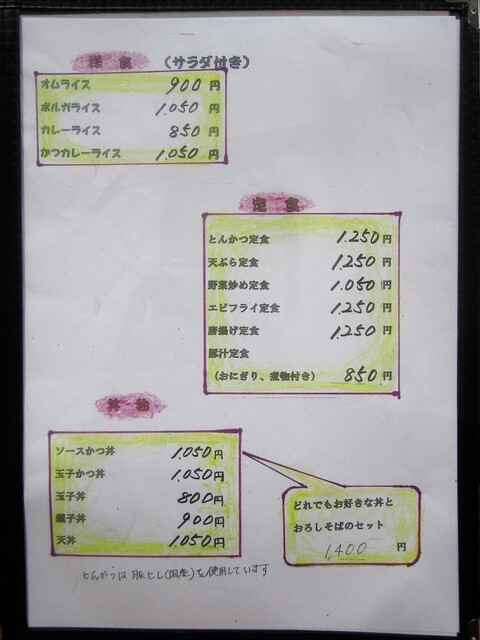 洋食 （サラダ付き）
オムライス 900 円
ボルガライス 1.050 円
カレーライス 850 円
かつカレーライス 1.050 円
定食
とんかつ定食 1.250 円
天ぷら定食 1.250 円
野菜炒め定食 1.050 円
エビフライ定食 1.250 円
唐揚げ定食 1.250 円
豚汁定食
（おにぎり、煮物付き） 850 円
丼物
ソースかつ丼 1.050 円
玉子かつ丼 1.050 円
玉子丼 800 円
親子丼 900 円
天丼 1.050 円
どれでもお好きな丼と
おろしそばのセット
1,400 円
とんかつは豚ヒレ(国産)を使用しています